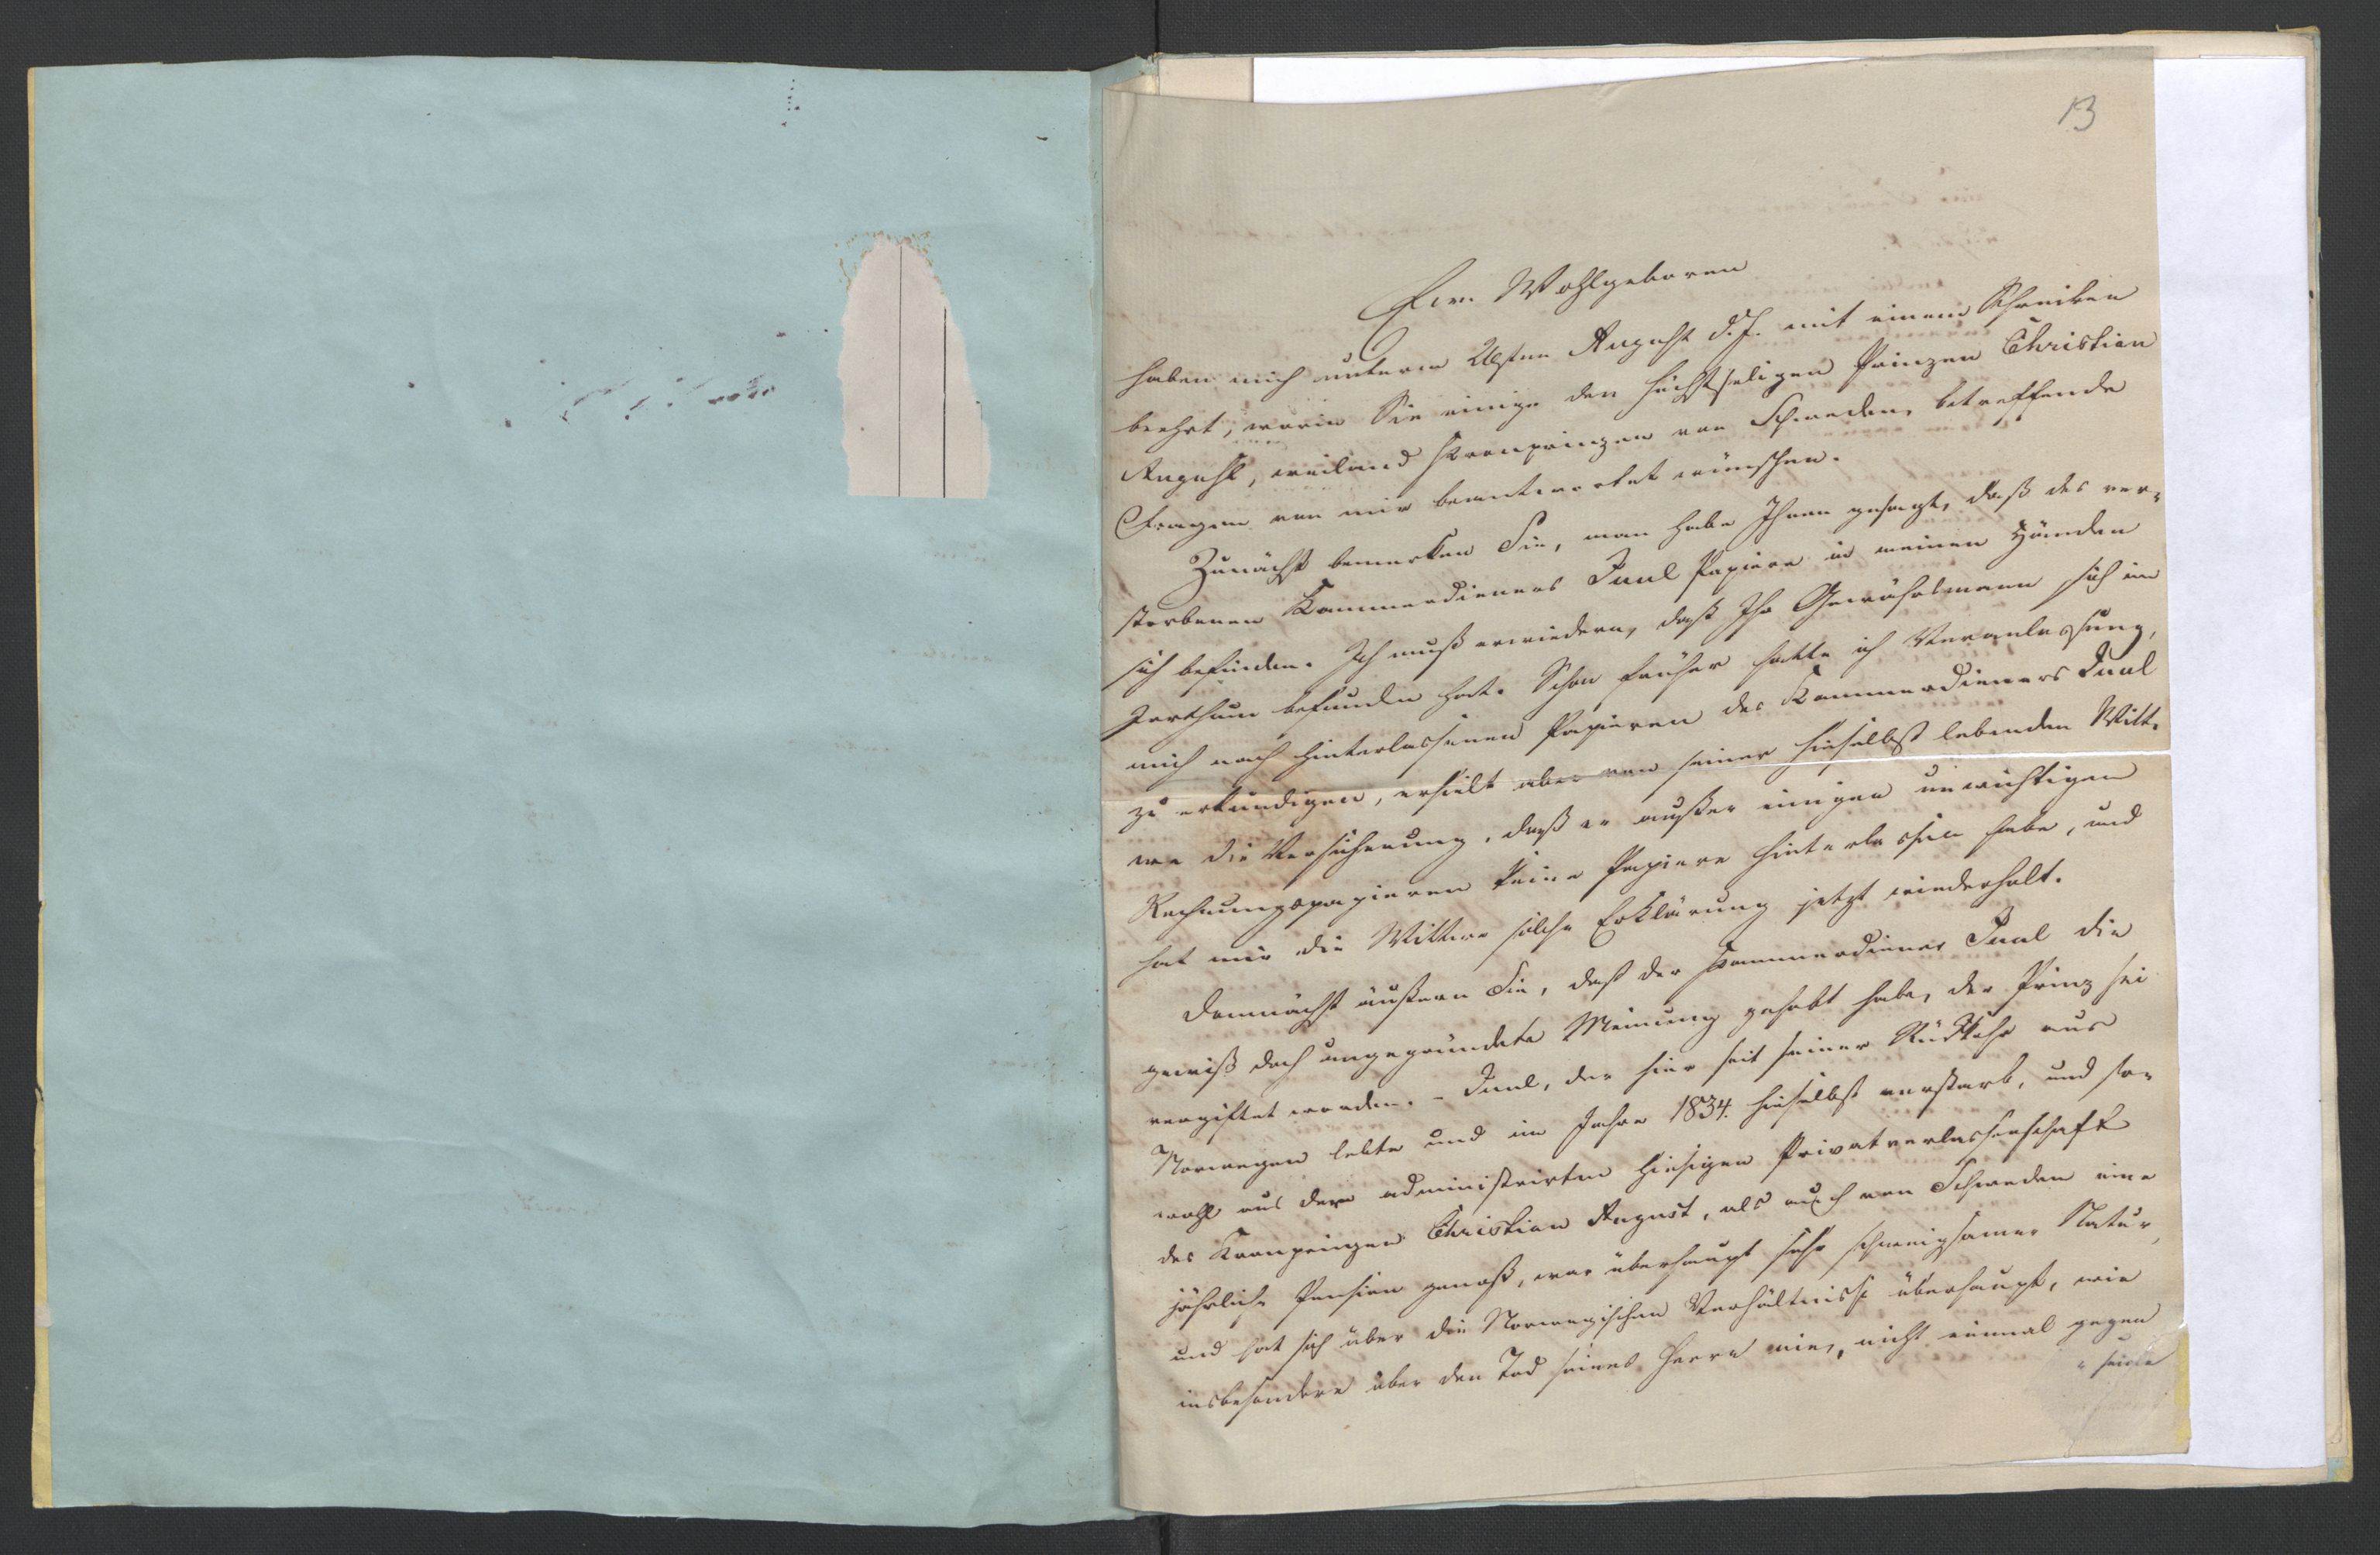 13
Ew. Wohlgeboren
haben mich unterm 26sten August d. J. mit einem Schreiben
beehrt, worin Sie einige den höchstseligen Prinzen Christian
August, weiland Kronprinzen von Schweden, betreffende
Fragen von mir beantwortet wünschen.
Zunächst bemerken Sie, man habe Ihnen gesagt, daß des ver-
storbenen Kammerdieners Juul Papiere in meinen Händen
sich befinden. Ich muß erwiedern, daß Ihr Gewährsmann sich im
Irrthum befunden hat. Schon früher hatte ich Veranlassung,
mich nach hinterlassenen Papieren des Kammerdieners Juul
zu erkundigen, erhielt aber von seiner hieselbst lebenden Witt-
we die Versicherung, daß er außer einigen unwichtigen
Rechnungspapieren keine Papiere hinterlassen habe, und
hat mir die Wittwe solche Erklärung jetzt wiederholt.
Demnächst äußern Sie, daß der Kammerdiener Juul die
gewiß doch ungegründete Meinung gehabt habe, der Prinz sei
vergiftet worden. – Juul, der hier seit seiner Rückkehr aus
Norwegen lebte und im Jahre 1834. hieselbst verstarb, und so-
wohl aus der administrirten hiesigen Privatverlassenschaft
des Kronprinzen Christian August, als auch von Schweden eine
jährliche Pension genoß, war überhaupt sehr schweigsamer Natur,
und hat sich über die Norwegischen Verhältnisse überhaupt, wie
insbesondere über den Tod seines Herrn nie, nicht einmal gegen
seine